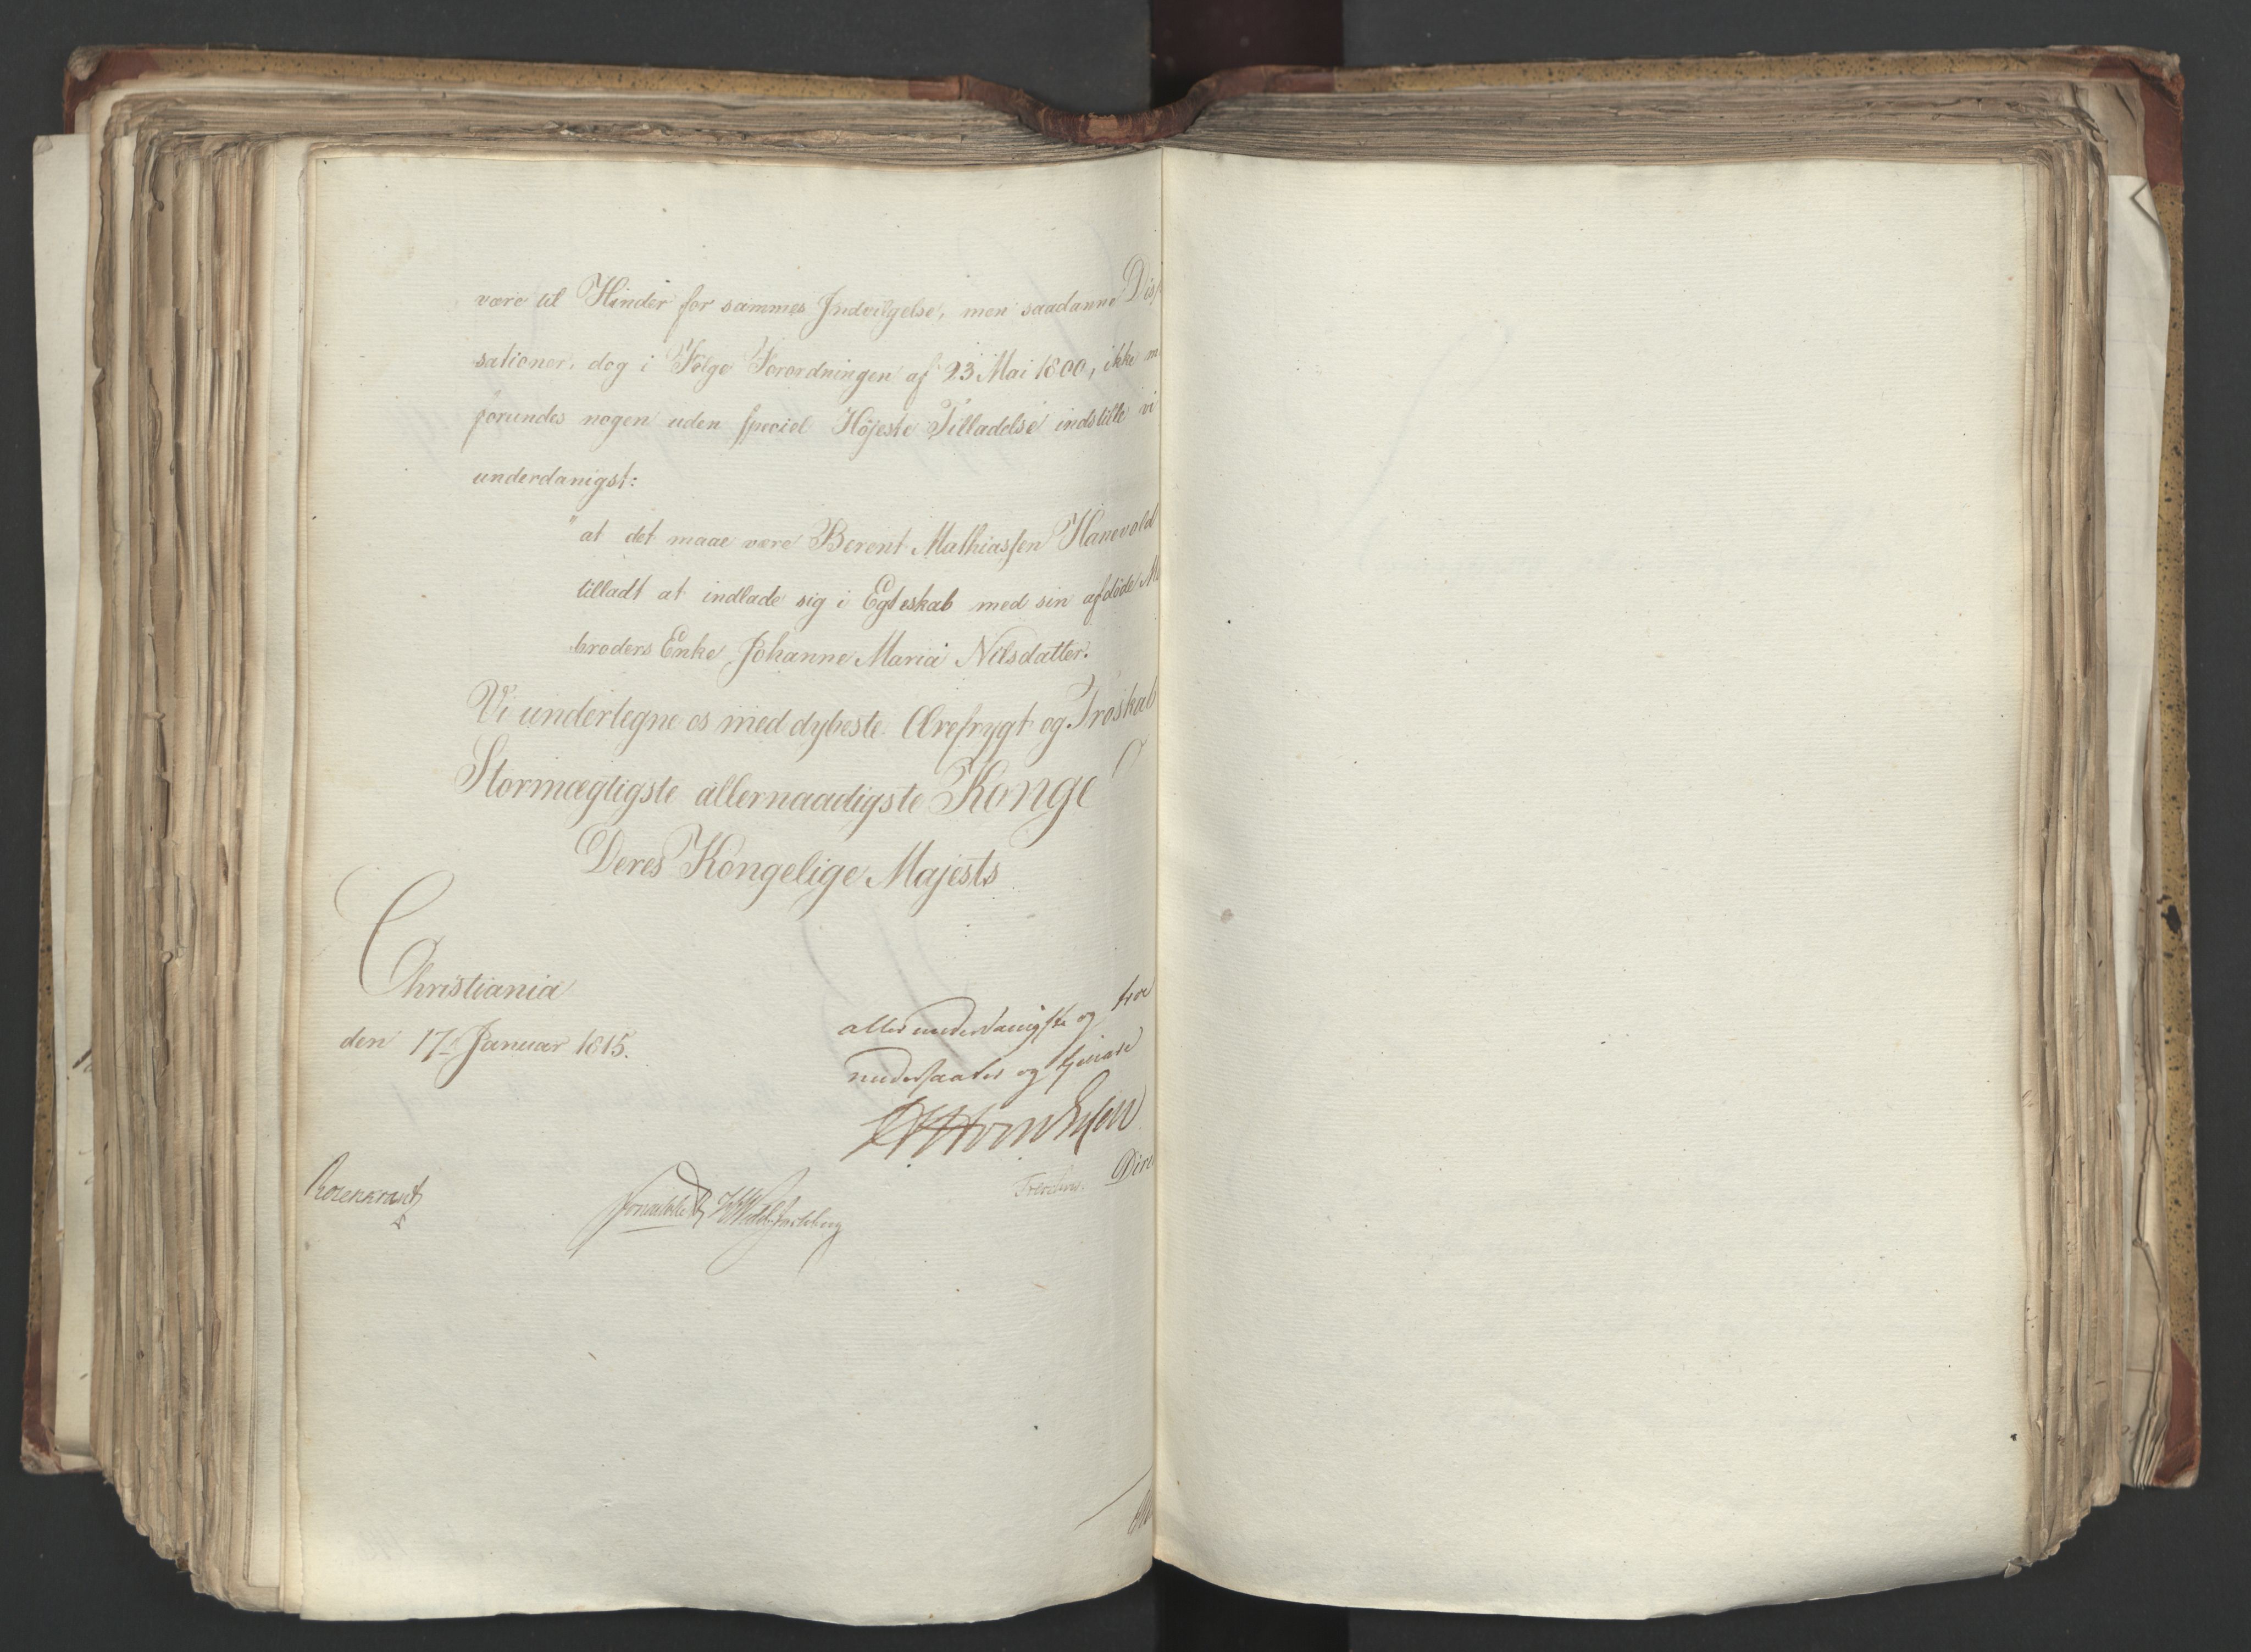 være til Hinder for sammes Indvilgelse, men saadanne Disp
sationer, dog i Følge Forordningen af 23 Mai 1800, ikke m
forundes nogen uden speciel Højeste Tilladelse indstille vi
underdanigst:
"at det maae være Berent Mathiassen Hanevold
tilladt at indlade sig i Egteskab med sin afdöde M
broders Enke Johanne Maria Nilsdatter.
Vi undertegne os med dybeste Ærefrygt og Troskab
Stormægtigste allernaadigste Konge
Deres Kongelige Majests
Christiania
den 17de Januar 1815.
allerunderdanigste og troe
undersaatter og tjenere
Rosenkrantz
Sommerhielm HWedelJarlsberg
Treschow. Diri